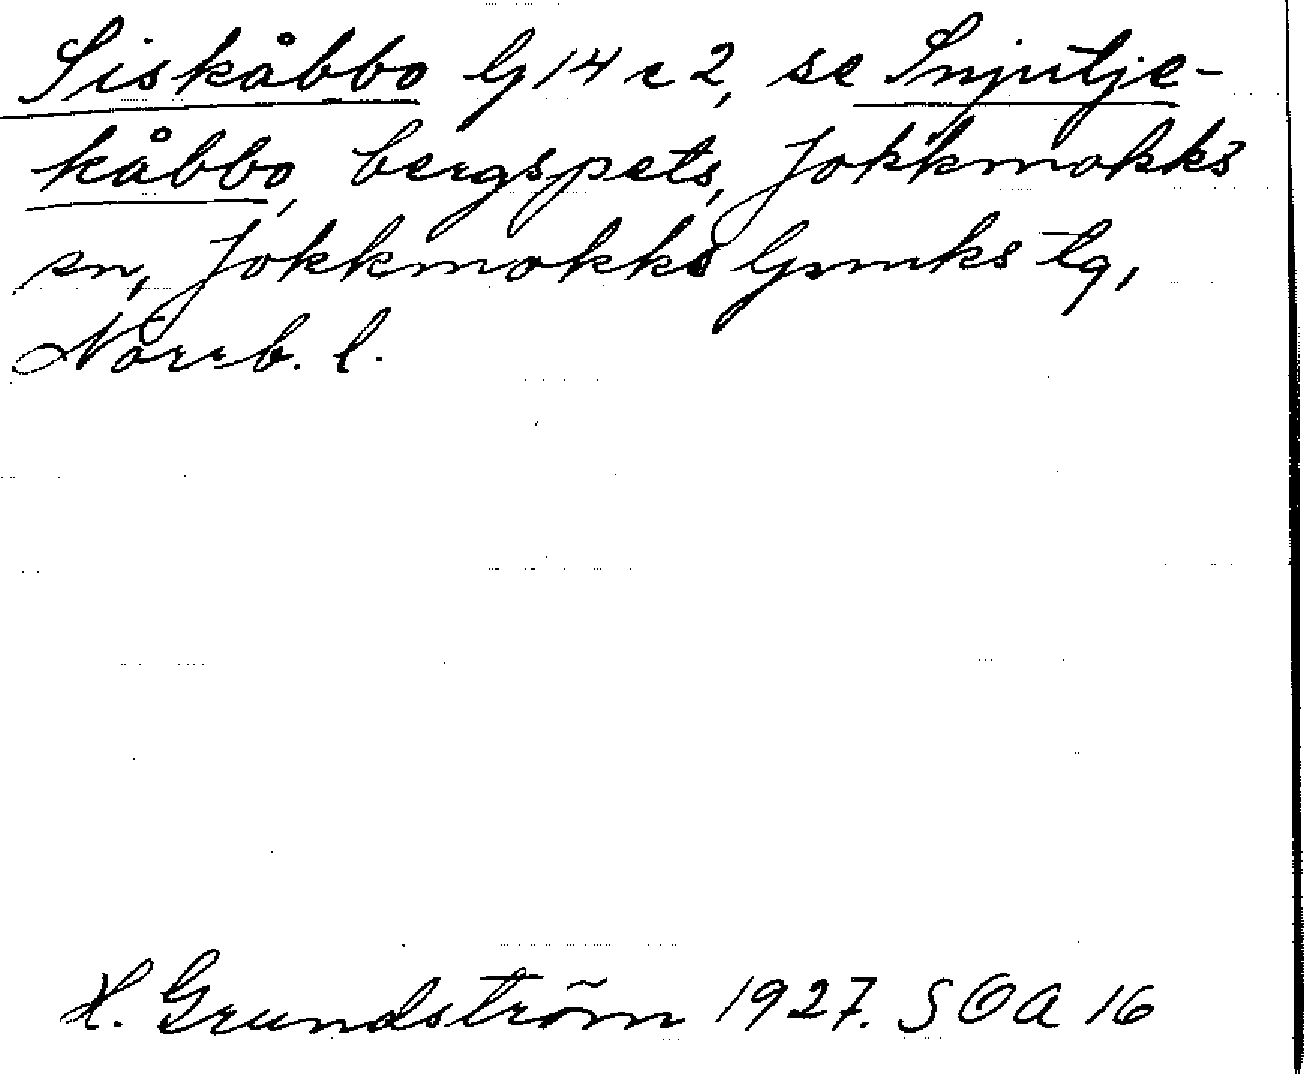 Siskåbbo G 14 c 2, se Snjutje-
kåbbo, bergspets, Jokkmokks
sn, Jokkmokks lg,
Norrb. l.
H. Grundström 1927. SOA 16